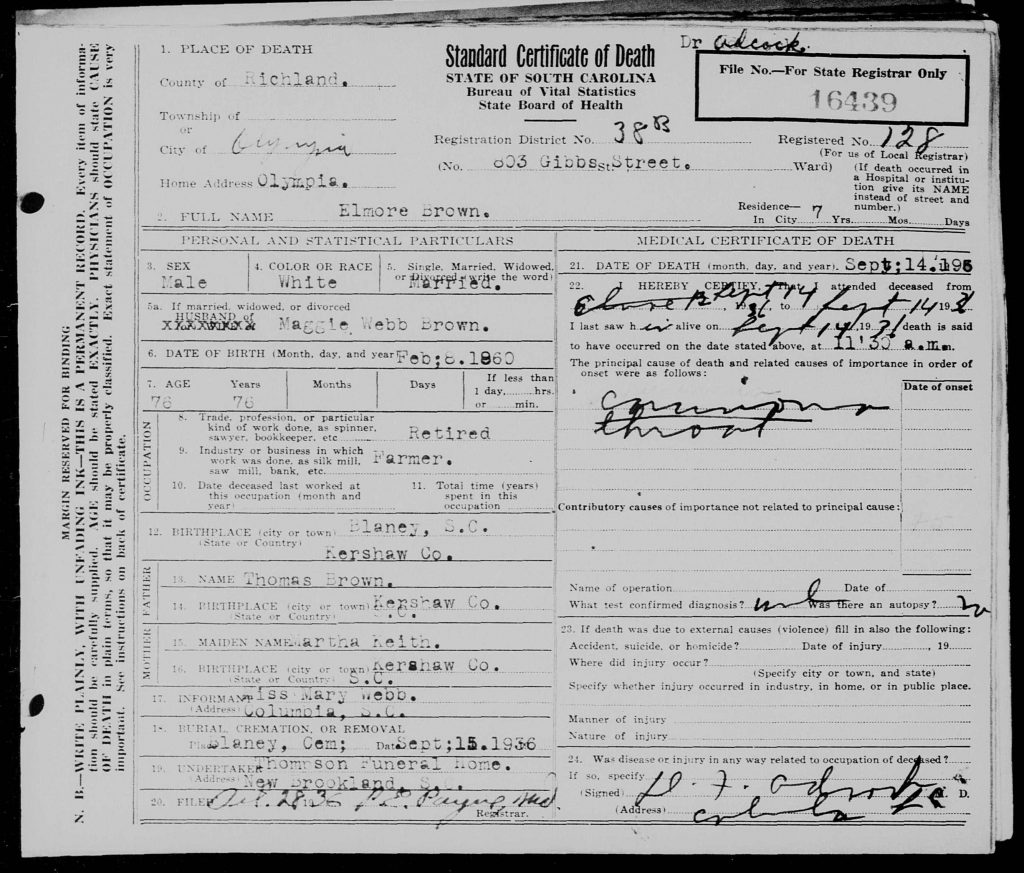 Dr Adcock.
1. PLACE OF DEATH
County of Richland.
Township of
or
City of Olympia
Home Address Olympia.
Standard Certificate of Death
STATE OF SOUTH CAROLINA
Bureau of Vital Statistics
State Board of Health
Registration District No. 38B
(No. 803 Gibbs St. Street. Ward)
File No.—For State Registrar Only
16439
Registered No. 128
(For us of Local Registrar)
(If death occurred in
a Hospital or institu-
tion give its NAME
instead of street and
number.)
2. FULL NAME Elmore Brown.
Residence— 7
In City Yrs. Mos. Days
PERSONAL AND STATISTICAL PARTICULARS
3. SEX
Male
4. COLOR OR RACE
White
5. Single, Married, Widowed,
or Divorced (write the word)
Married.
5a. If married, widowed, or divorced
HUSBAND of
Maggie Webb Brown.
6. DATE OF BIRTH (Month, day, and year) Feb;8.1860
7. AGE Years Months Days
76 76
If less than
1 day, hrs.
or min.
OCCUPATION
8. Trade, profession, or particular
kind of work done, as spinner,
sawyer, bookkeeper, etc Retired
9. Industry or business in which
work was done, as silk mill,
saw mill, bank, etc. Farmer.
10. Date deceased last worked at
this occupation (month and
year)
11. Total time (years)
spent in this
occupation
12. BIRTHPLACE (city or town) Blaney, S.C.
(State or Country)
Kershaw Co.
FATHER
13. NAME Thomas Brown.
14. BIRTHPLACE (city or town) Kershaw Co.
(State or Country) S.C.
MOTHER
15. MAIDEN NAME Martha Keith.
16. BIRTHPLACE (city or town) Kershaw Co.
(State or Country) S.C.
17. INFORMANT Miss Mary Webb.
(Address) Columbia, S.C.
18. BURIAL, CREMATION, OR REMOVAL
Place Blaney, Cem; Date Sept;15.1936
19. UNDERTAKER Thompson Funeral Home.
(Address) New Brookland, S.C.
20. FILED Oct. 28 36
Registrar.
MEDICAL CERTIFICATE OF DEATH
21. DATE OF DEATH (month, day, and year). Sept;14.
22. I HEREBY CERTIFY, That I attended deceased from
Sept 14, 19 to Sept 14 19
I last saw him alive on Sept 14, 19 death is said
to have occurred on the date stated above, at 11'30 a.m.
The principal cause of death and related causes of importance in order of
onset were as follows:
Date of onset
throat
Contributory causes of importance not related to principal cause:
Name of operation Date of
What test confirmed diagnosis? Was there an autopsy? no
23. If death was due to external causes (violence) fill in also the following:
Accident, suicide, or homicide? Date of injury , 19
Where did injury occur?
(Specify city or town, and state)
Specify whether injury occurred in industry, in home, or in public place.
Manner of injury
Nature of injury
24. Was disease or injury in any way related to occupation of deceased?
If so, specify
(Signed) Adcock M. D.
(Address) Columbia SC
MARGIN RESERVED FOR BINDING
N. B.—WRITE PLAINLY, WITH UNFADING INK—THIS IS A PERMANENT RECORD. Every item of informa-
tion should be carefully supplied. AGE should be stated EXACTLY. PHYSICIANS should state CAUSE
OF DEATH in plain terms, so that it may be properly classified. Exact statement of OCCUPATION is very
important. See instructions on back of certificate.